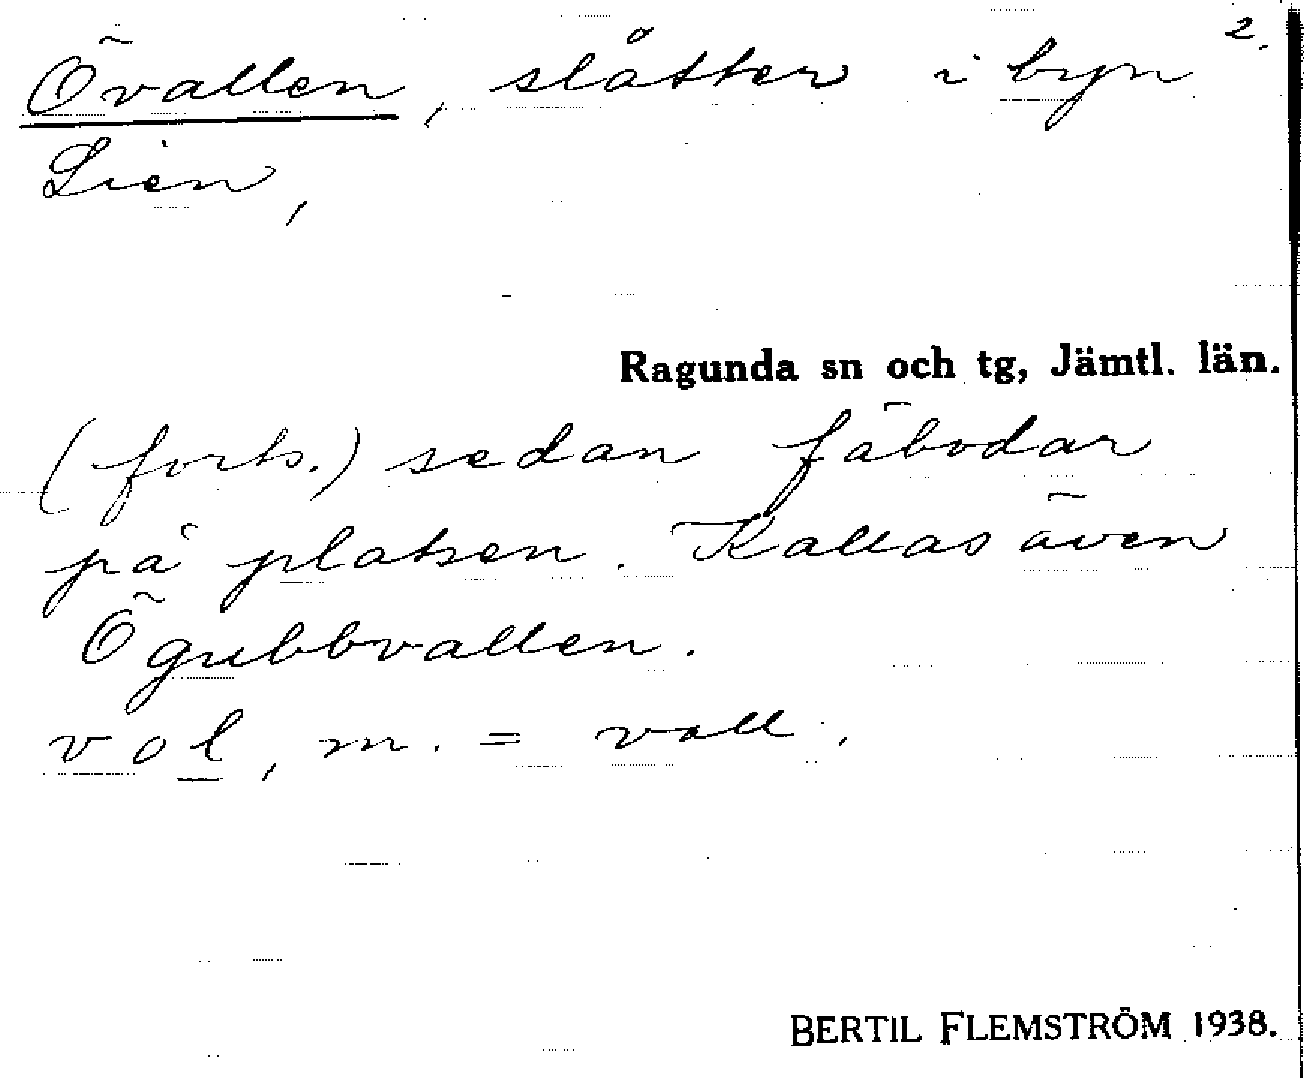 2.
Övallen, slåtter i byn
Lien,
Ragunda sn och tg, Jämtl. län.
(forts.) sedan fäbodar
på platsen. Kallas även
Ögubbvallen.
vol, m. = vall.
BERTIL FLEMSTRÖM 1938.